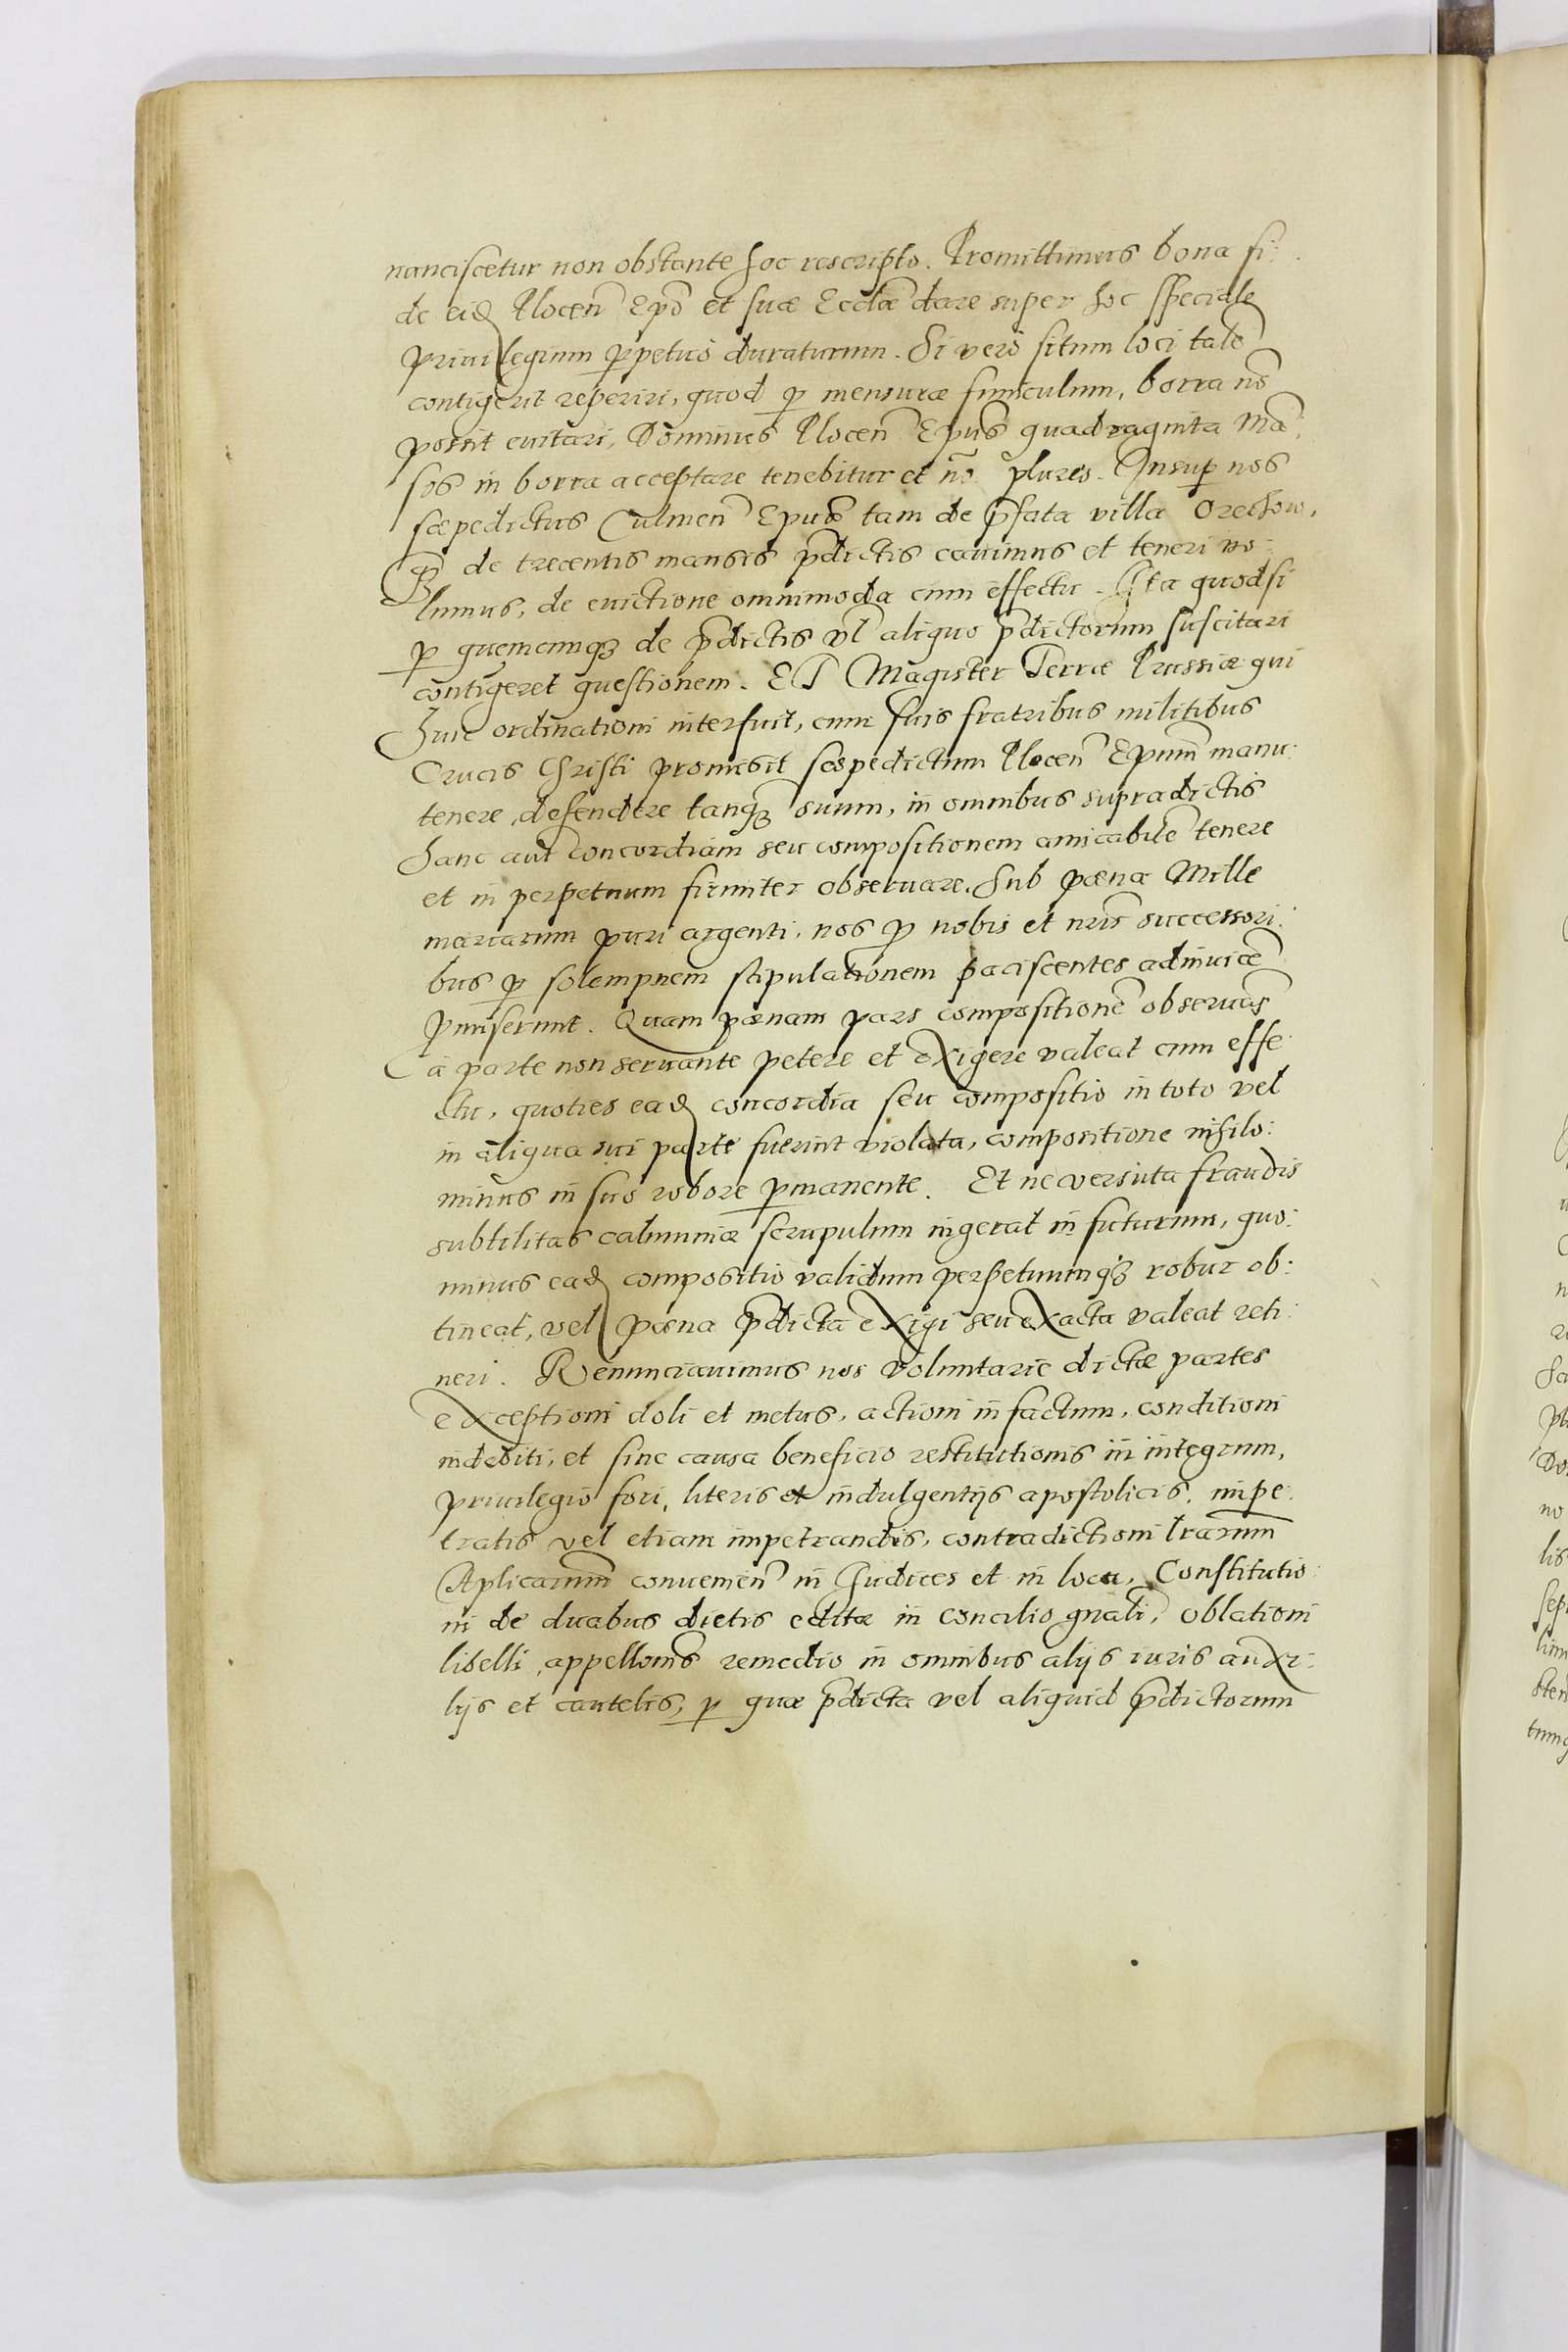 nanciscetur non obstante hoc rescripto. Promittimus bona fi:
de eid Plocen̄ Epō et suæ Ecclæ dare super hoc speciale
priuilegium ꝑpetuo duraturum. Si vero situm loci talē
contigerit reperiri, quod ꝑ mensuræ funiculum, borra nō
possit euitari, Dominus Plocen̄ Epūs quadraginta Mā:
sos in borra acceptare tenebitur et nō plures. Insuꝑ nos
sæpedictus Culmen̄ Epūs tam de p̄fata villa Orechow,
q̄ de trecentis mansis p̄dictis cauimus et teneri vo:
lumus, de euictione omnimoda cum effectu. Ita quod si
ꝑ quemcunqȝ de p̄dictis vl̄ aliquo p̄dictorum suscitari
contigeret questionem. Et Magister Terræ Prussiæ qui
huic ordinationi interfuit, cum suis fratribus militibus
Crucis Christi promisit sæpedictum Plocen̄ Epum̄ manu:
tenere, defendere tanqȝ suum, in omnibus supradictis
hanc aut̄ concordiam seu compositionem amicabilē tenere
et in perpetuum firmiter obseruare. Sub pœna Mille
marcarum puri argenti, nos ꝑ nobis et nr̄is successori:
bus ꝑ solempnem stipulationem paciscentes adinuicē
ꝓmiserunt. Quam pœnam pars compositionē obseruās
à parte non seruante petere et exigere valeat cum effe:
ctu, quoties ead concordia seu compositio in toto vel
in aliqua sui parte fuerint violata, compositione nihilo:
minus in suo robore ꝑmanente. Et ne versuta fraudis
subtilitas calumniæ scrupulum ingerat in futurum, quo:
minus ead compositio validum perpetuumqȝ robur ob:
tineat, vel pœna p̄dicta exigi seu exacta valeat reti:
neri. Renunciauimus nos voluntarie dictæ partes
exceptioni doli et metus, actioni in factum, conditioni
indebiti, et sine causa beneficio restitutionis in integrum,
priuilegio fori, literis et indulgentijs apostolicis, impe:
tratis vel etiam impetrandis, contradictioni lr̄arum
Aplicarum̄ conuenien̄ in Judices et in loca, Constitutio:
ni de duabus dietis editæ in concilio gn̄ali, oblationi
libelli, appellonis̄ remedio in omnibus alijs iuris auxi:
lijs et cautelis, ꝑ quæ p̄dicta vel aliquid p̄dictorum